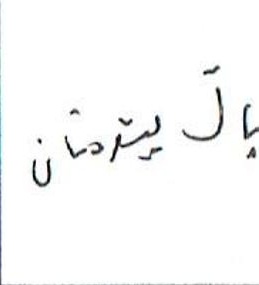 پاڵ پیتەرمان